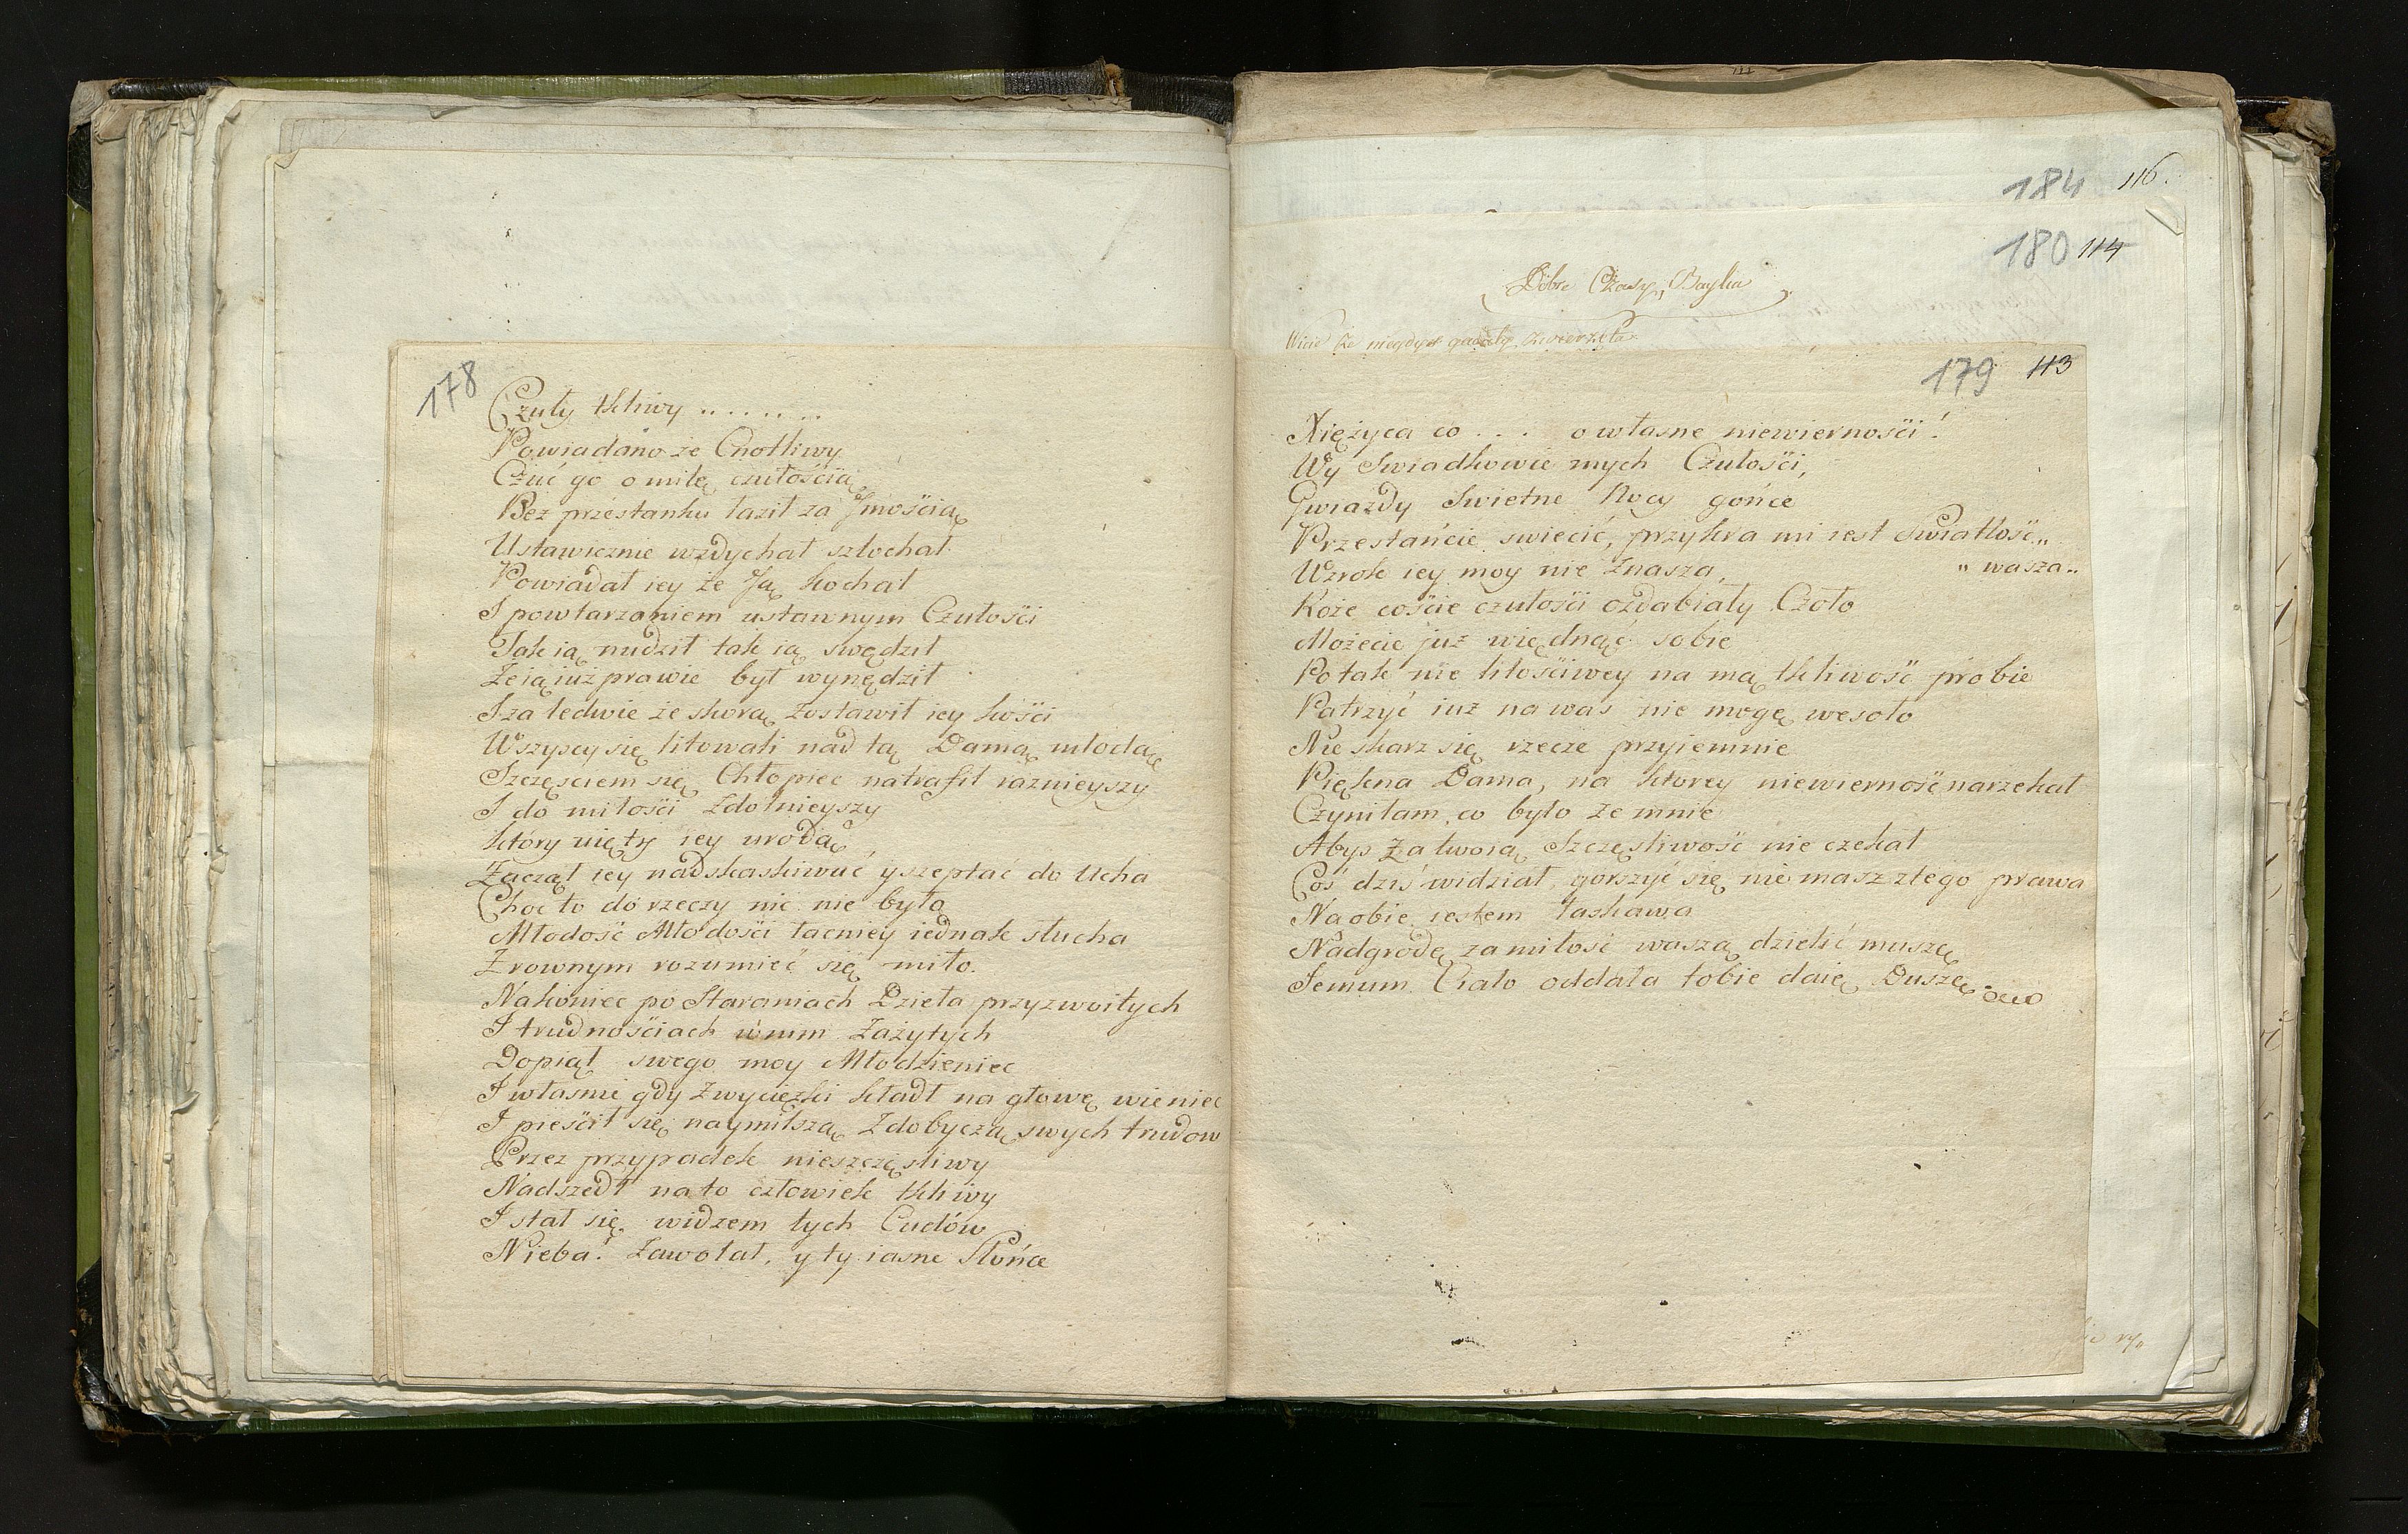 178
Czuły tkliwy ........
Powiadano że Cnotliwy
Czuć go o milę czułością
Bez przestanku łaził za Jmością
Ustawicznie wzdychał szlochał
Powiadał iey że Ją kochał
I powtarzaniem ustawnym Czułości
Tak ią nudził tak ią swędził
Że ią iuż prawie był wynędził
I za ledwie że skorą zostawił iey kości
Wszyscy się litowali nad tą Damą młodą
Szczęsciem się Chłopiec natrafił raznieyszy
I do miłości zdolnieyszy
który uięty iey urodą
Zaczął iey nadskakiwać y szeptać do Ucha
Choć to do rzeczy nic nie było
Młodość Młodości łacniey iednak słucha
Z rownym rozumieć się miło.
Nakoniec po Staraniach Dzieła przyzwoitych
I trudnościach w nim Zażytych
Dopiął swego moy Młodzieniec
I własnie gdy Zwyciezki kładł na głowę wieniec
I pieścił się naymilszą Zdobyczą swych trudow
Przez przypadek nieszczęsliwy
Nadszedł na to człowiek tkliwy
I stał się widzem tych Cudów
Nieba! Zawołał, y ty iasne Słońce
184 116.
180 114
Dobre Czasy, Bayka
Wiele że niegdyś gadały Zwierzęta
179 113
Xiężyca co . . . o własne niewierności!
Wy Swiadkowie mych Czułości,
Gwiazdy Swietne Nocy gońce
Przestańcie swiecić, przykra mi iest Swiatłość„
Wzrok iey moy nie Znasza, „ wasza„
Róże coście czułości ozdabiały Czoło
Możecie już więdnąć sobie
Po tak nie litościwey na mą tkliwość probie
Patrzyć iuż na was nie mogę wesoło
Nie skarz się rzecze przyjemnie
Piękna Dama, na ktorey niewierność narzekał
Czyniłam, co było ze mnie
Abyś Za twoią Szczęsliwość nie czekał
Coś dziś widział, gorszyć się nie masz złego prawa
Na obie iestem łaskawa
Nadgrodę za miłość waszą dzielić muszę
Jemum Ciało oddała tobie daię Duszę